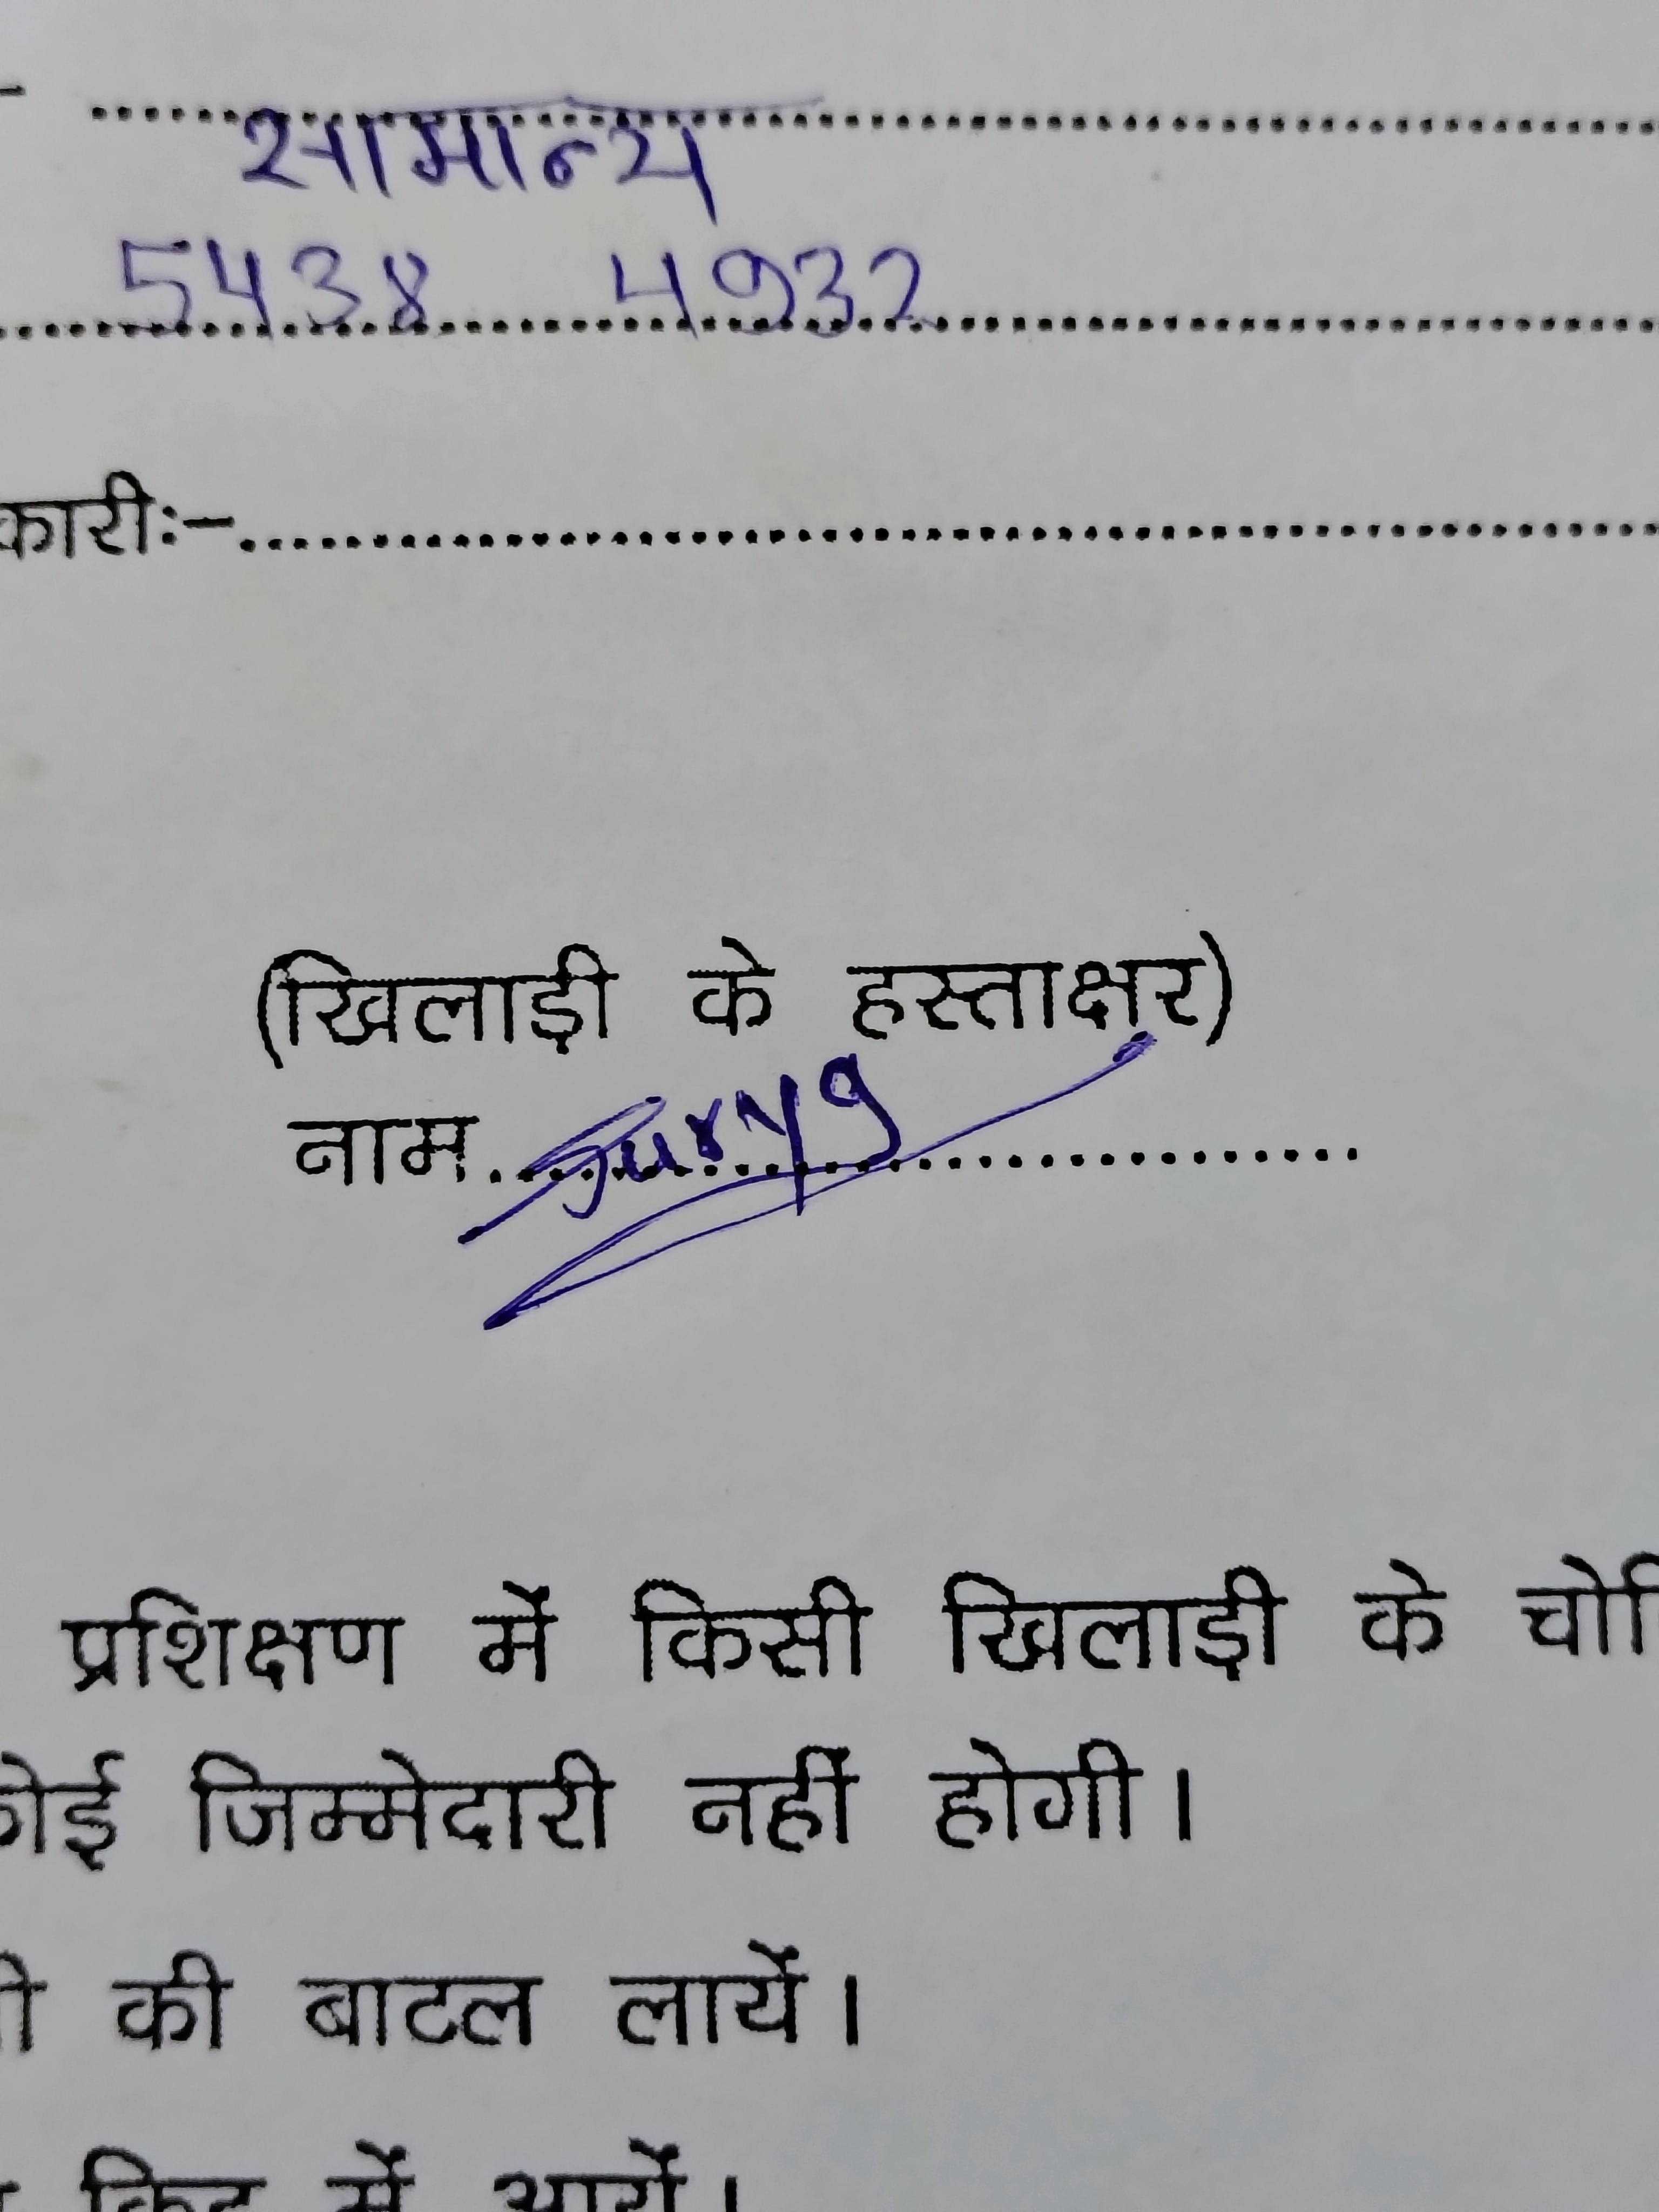 सामान्य
5438 4932
कारीः-
(खिलाड़ी के हस्ताक्षर)
नाम Surya
प्रशिक्षण में किसी खिलाड़ी के
कोई जिम्मेदारी नहीं होगी।
की बाटल लायें।
में आयें।